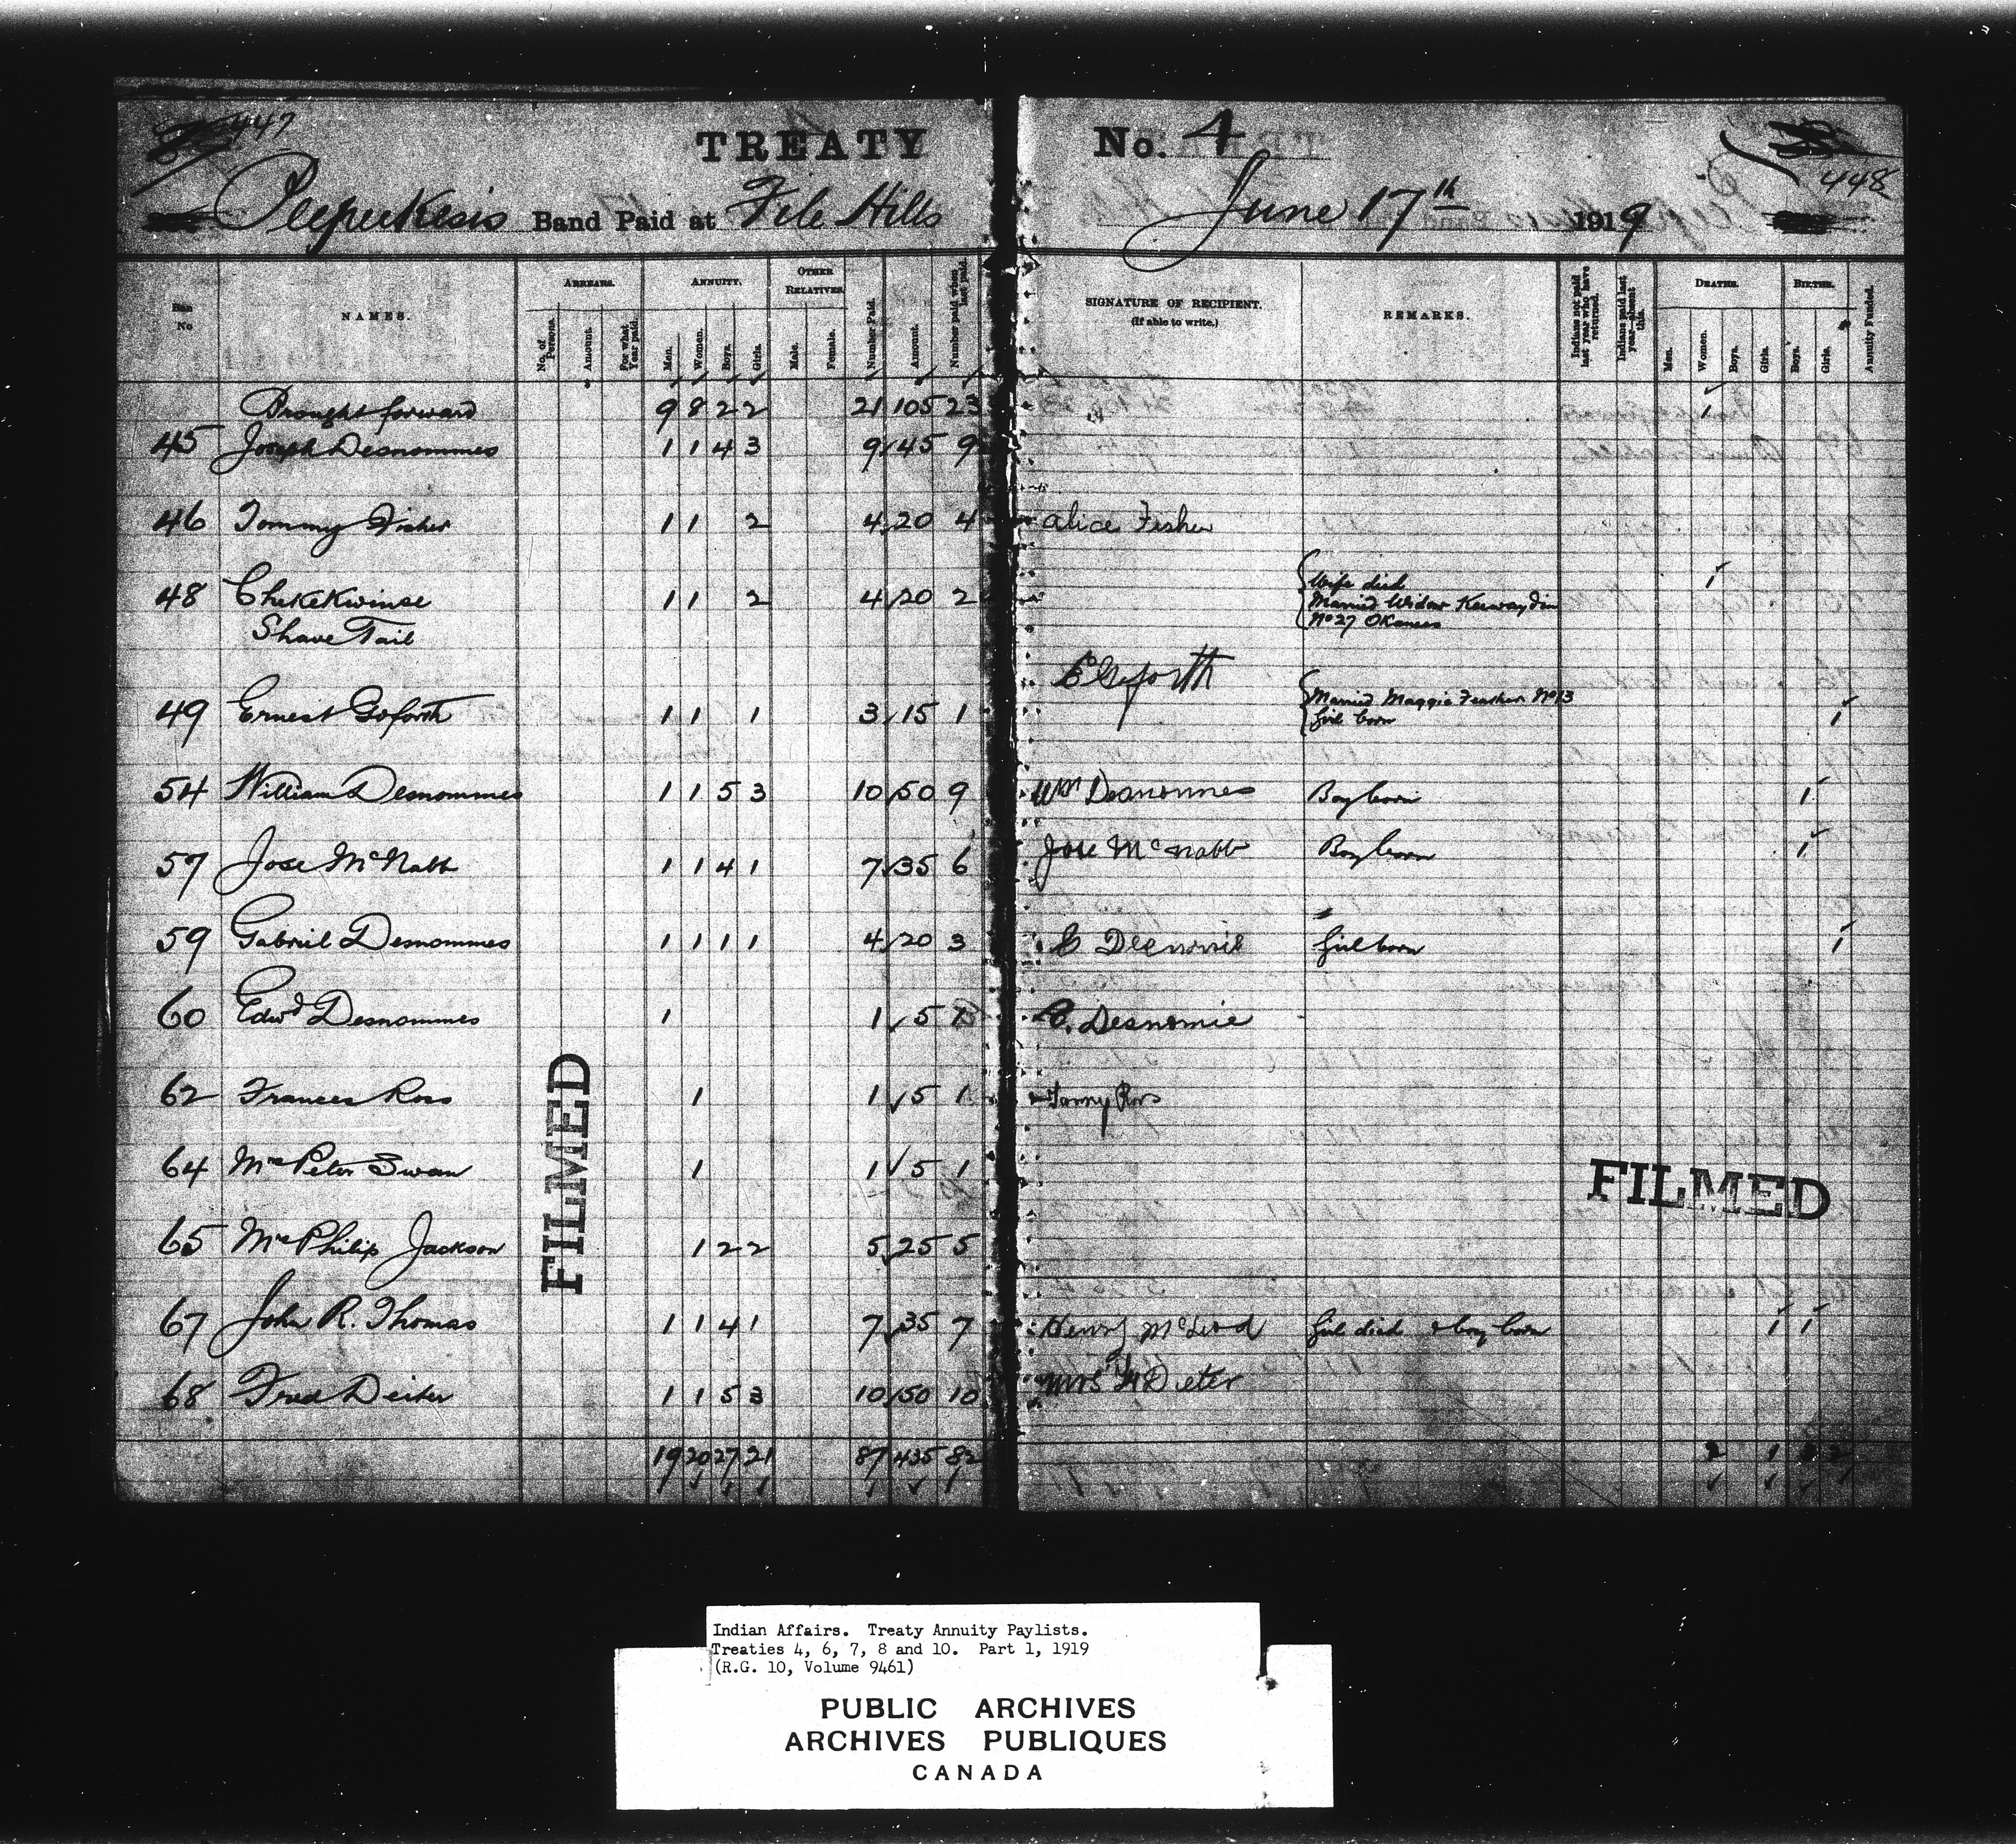 447
TREATY No. 4
448
Peepeekesis Band Paid at File Hills June 17th 1919
Ban No
NAMES.
ARREARS.
No. of Persons.
Amount.
For what Year paid.
ANNUITY.
Men.
Women.
Boys.
Girls.
OTHER RELATIVES.
Male.
Female.
Number Paid.
Amount.
Number paid when last paid.
SIGNATURE OF RECIPIENT.
(If able to write.)
REMARKS.
Indians not paid last year who have returned.
Indians paid last year—absent this.
DEATHS.
Men.
Women.
Boys.
Girls.
BIRTHS.
Boys.
Girls.
Annuity Funded.
Brought forward 9 8 2 2 21 105 23 1
45 Joseph Desnommes 1 1 4 3 9 45 9
46 Tommy Fisher 1 1 2 4 20 4 Alice Fisher
48 Chekekwinse 1 1 2 4 20 2 Wife died 1
Married Widow Keewaydin
Shave Tail No 27 Okanees
49 Ernest Goforth 1 1 1 3 15 1 E Goforth Married Maggie Feather No 13
Girl born 1
54 William Desnommes 1 1 5 3 10 50 9 Wm Desnommes Boy born 1
57 Jose McNabb 1 1 4 1 7 35 6 Jose McNabb Boy born 1
59 Gabriel Desnommes 1 1 1 1 4 20 3 Girl born 1
60 Edwd Desnommes 1 1 5 C. Desnomie
62 Frances Ross 1 1 5 1 Fanny Ross
64 Mrs Peter Swan 1 1 5 1
65 Mrs Philip Jackson 1 2 2 5 25 5
67 John R. Thomas 1 1 4 1 7 35 7 Henry McLeod Girl died & boy born 1 1
68 Fred Deiter 1 1 5 3 10 50 10 Mrs F Dieter
19 20 27 21 87 435 82 2 1 2
FILMED
FILMED
Indian Affairs. Treaty Annuity Paylists.
Treaties 4, 6, 7, 8 and 10. Part 1, 1919
(R.G. 10, Volume 9461)
PUBLIC ARCHIVES
ARCHIVES PUBLIQUES
CANADA